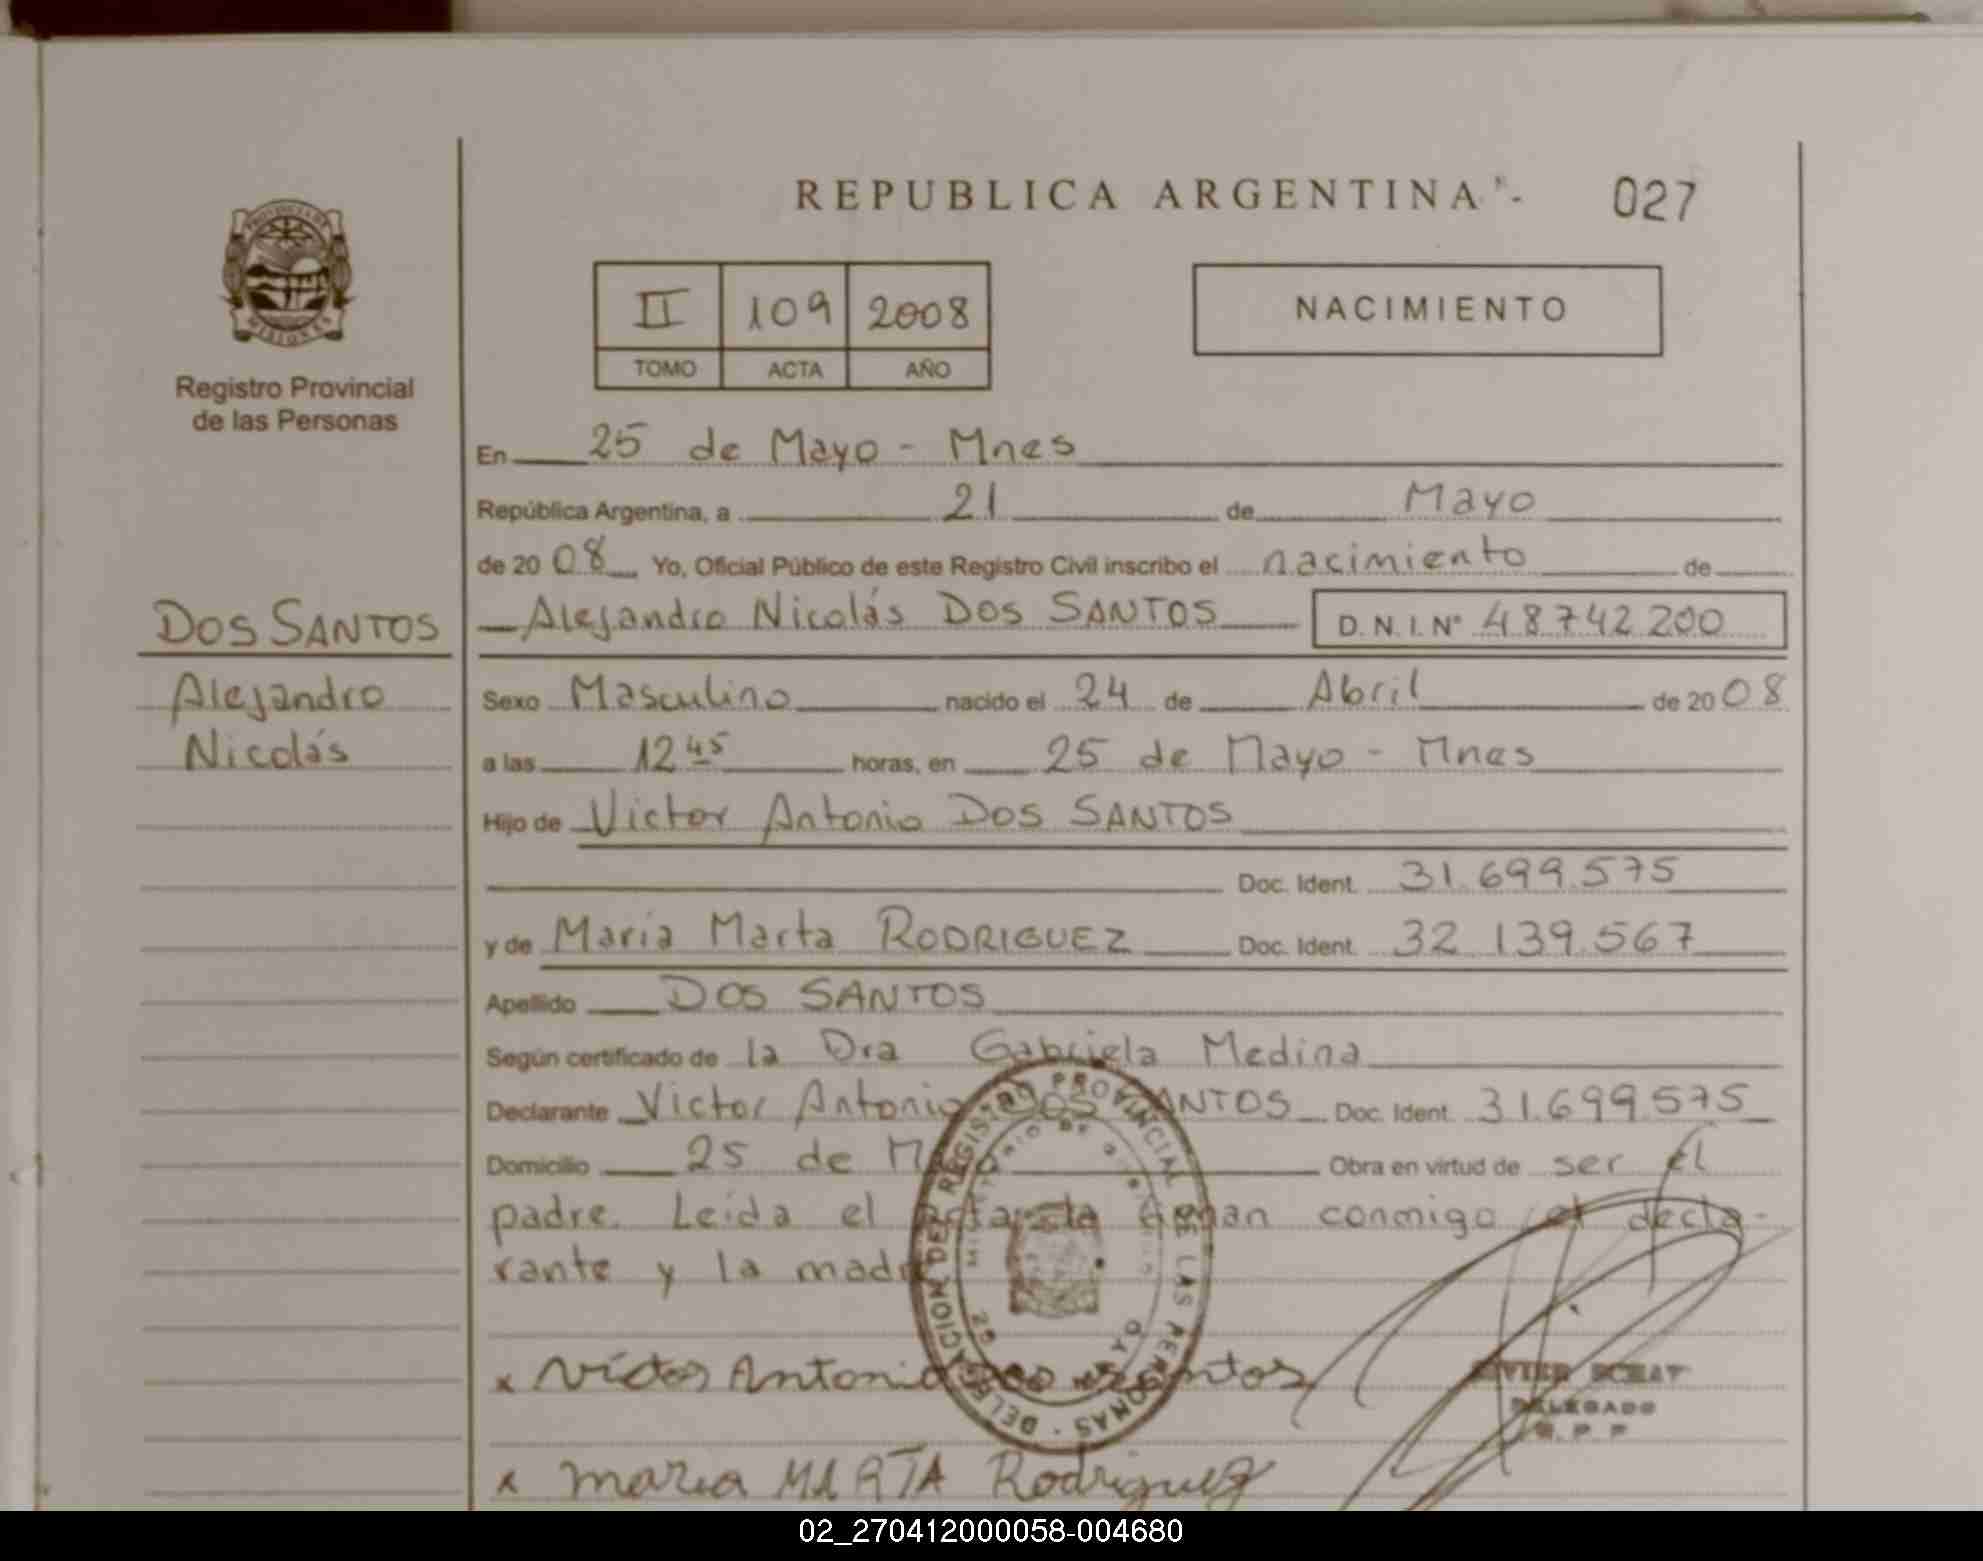 REPUBLICA ARGENTINA - 027
PROVINCIA DE
MISIONES
Registro Provincial
de las Personas
II 109 2008
TOMO ACTA AÑO
NACIMIENTO
En 25 de Mayo - Mnes
República Argentina, a 21 de Mayo
de 2008 Yo, Oficial Público de este Registro Civil inscribo el nacimiento de
DOS SANTOS
Alejandro
Nicolás
Alejandro Nicolás DOS SANTOS D.N.I.Nº 48742200
Sexo Masculino nacido el 24 de Abril de 2008
a las 12 45 horas, en 25 de Mayo - Mnes
Hijo de Victor Antonio DOS SANTOS
Doc. Ident. 31.699.575
y de María Marta RODRIGUEZ Doc. Ident. 32.139.567
Apellido DOS SANTOS
Según certificado de la Dra Gabriela Medina
Declarante Victor Antonio DOS SANTOS Doc. Ident. 31.699.575
Domicilio 25 de Mayo Obra en virtud de ser el
padre. Leída el acta la firman conmigo el decla-
rante y la madre
DELEGACION DEL REGISTRO PROVINCIAL DE LAS PERSONAS
MINISTERIO DE
x Victor Antonio Dos Santos
DELEGADO
R.P.P
x maria MARTA Rodriguez
02_270412000058-004680